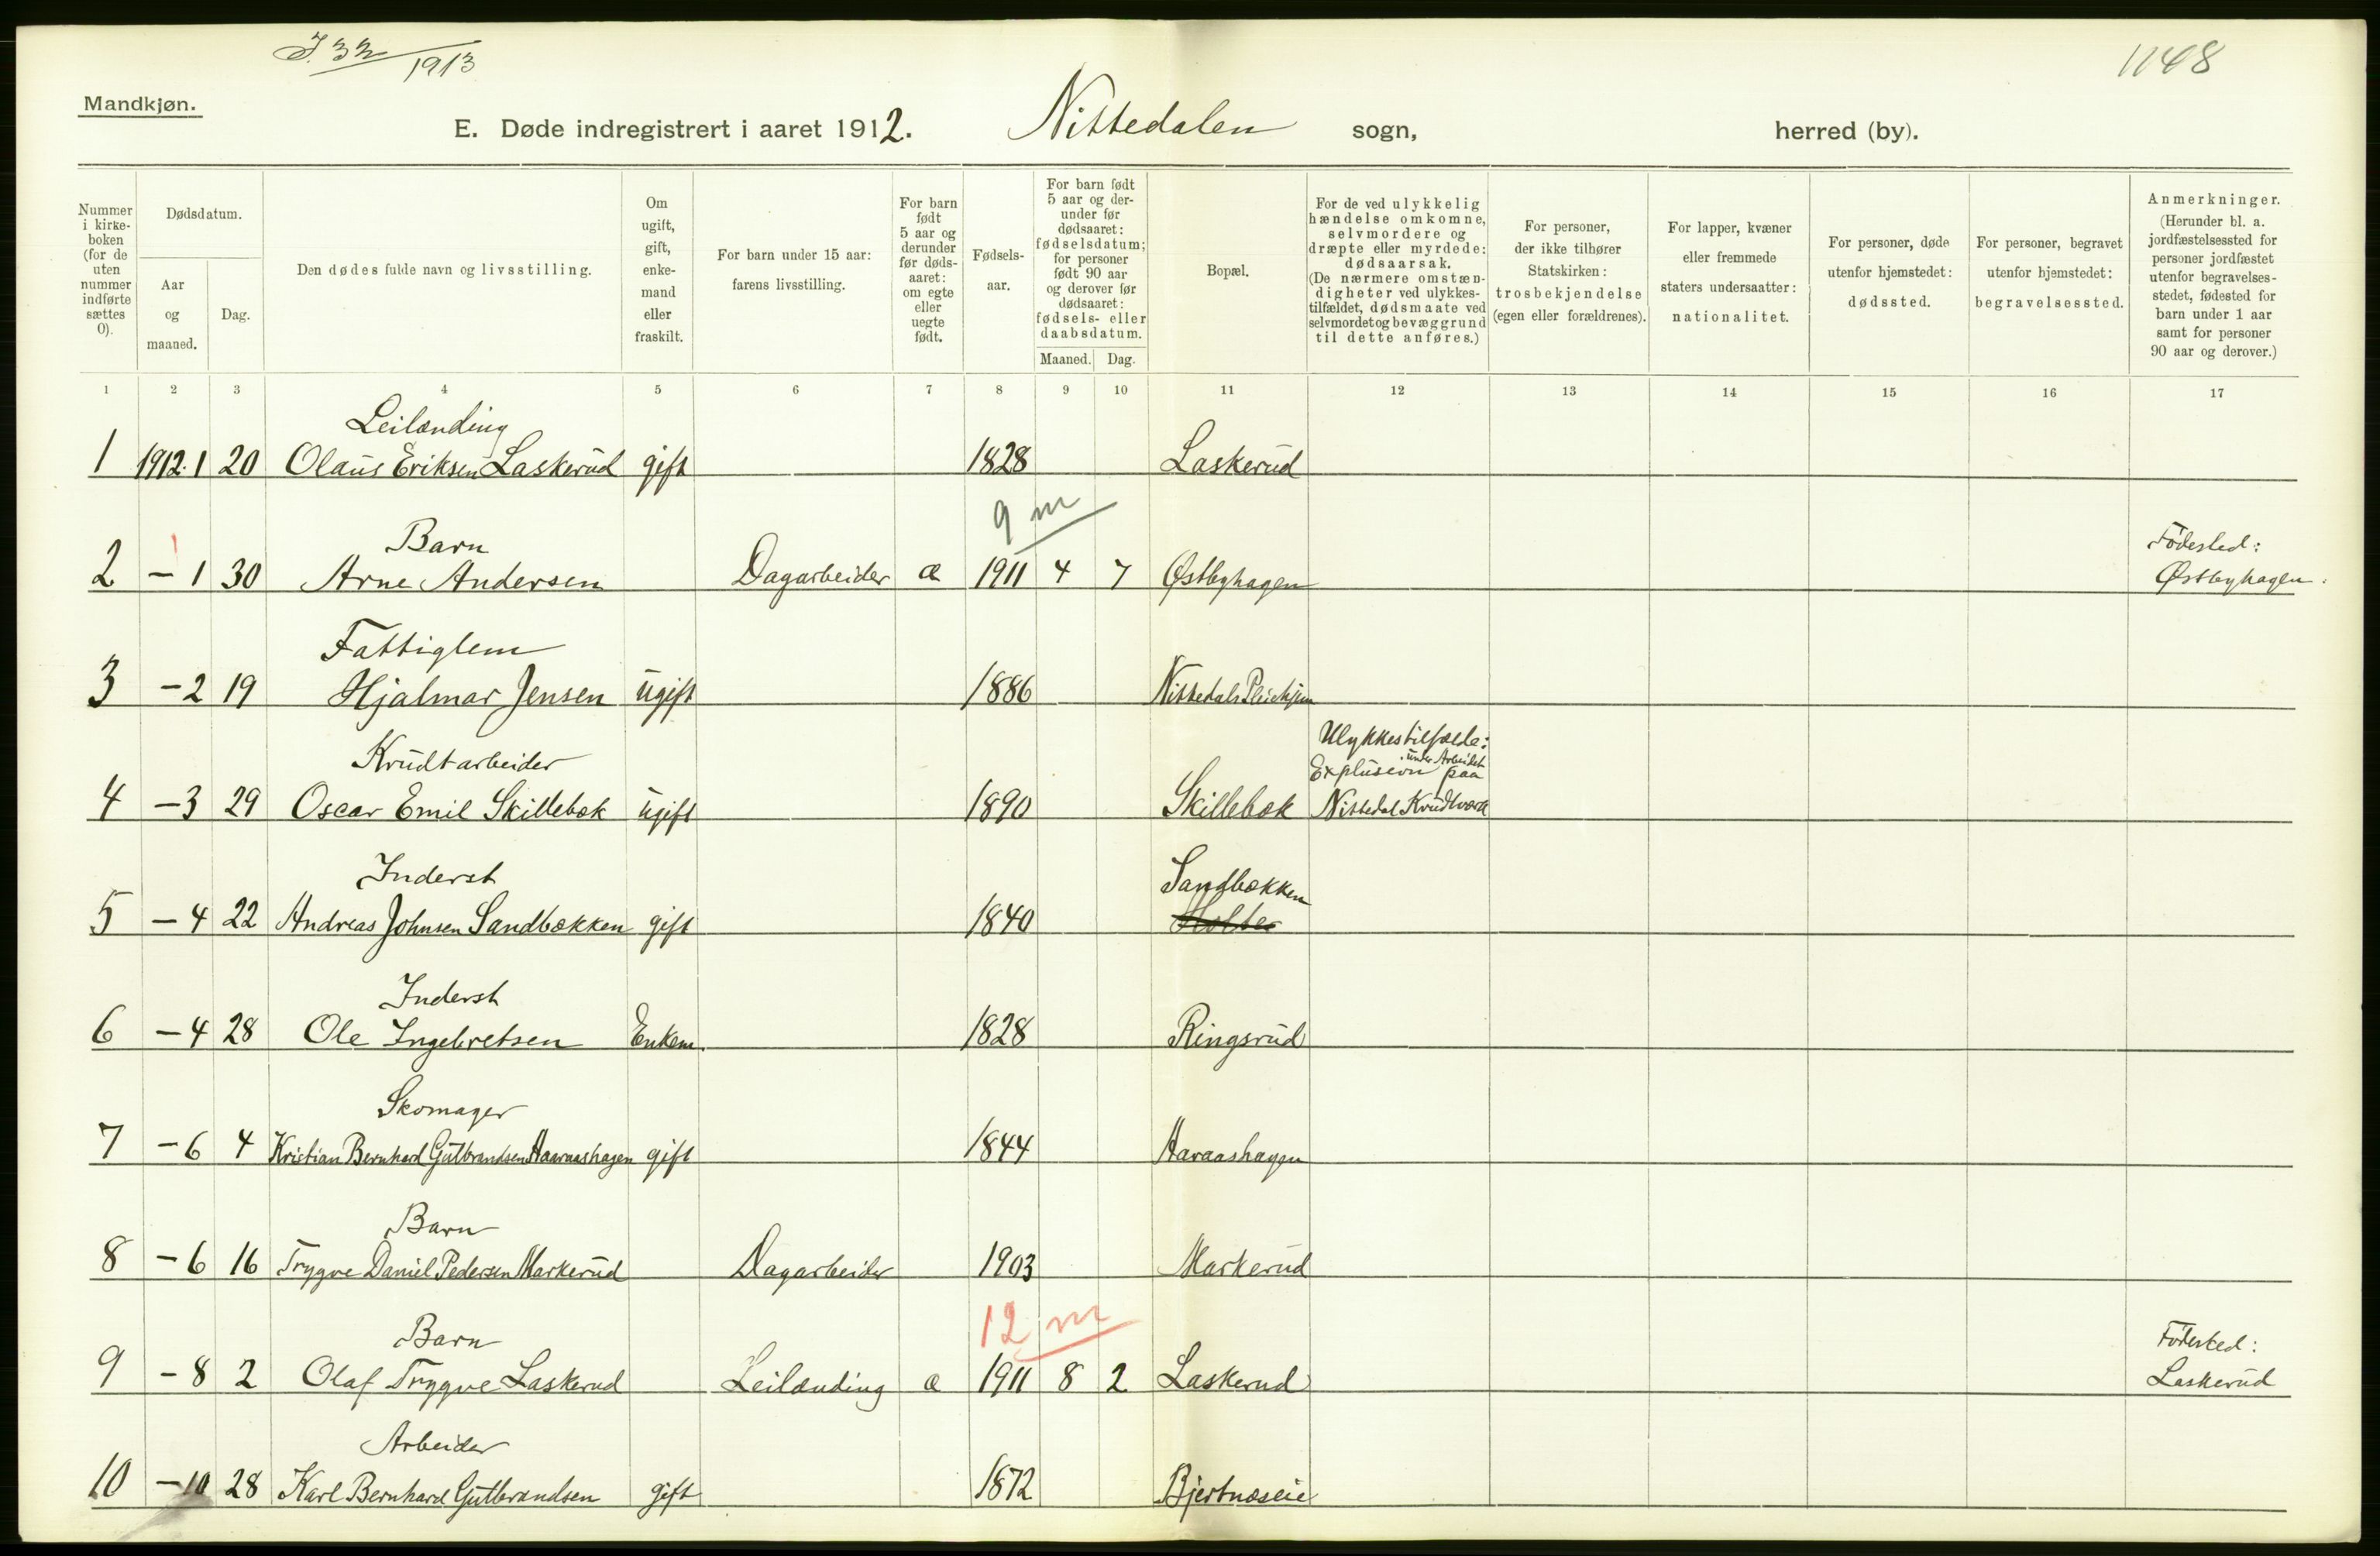 J. 32/1913
1148
Mandkjøn.
E. Døde indregistrert i aaret 1912. Nittedalen sogn, herred (by).
Nummer i kirkeboken (for de uten nummer indførte sættes 0).
Dødsdatum.
Aar og maaned.
Dag.
Den dødes fulde navn og livsstilling.
Om ugift, gift, enkemand eller fraskilt.
For barn under 15 aar: farens livsstilling.
For barn født 5 aar og derunder før dødsaaret: om egte eller uegte født.
Fødselsaar.
For barn født 5 aar og derunder før dødsaaret: fødselsdatum; for personer født 90 aar og derover før dødsaaret: fødsels- eller daabsdatum.
Maaned. Dag.
Bopæl.
For de ved ulykkelig hændelse omkomne, selvmordere og dræpte eller myrdede: dødsaarsak. (De nærmere omstændigheter ved ulykkestilfældet, dødsmaate ved selvmordet og bevæggrund til dette anføres.)
For personer, der ikke tilhører Statskirken: trosbekjendelse (egen eller forældrenes).
For lapper, kvæner eller fremmede staters undersaatter: nationalitet.
For personer, døde utenfor hjemstedet: dødssted.
For personer, begravet utenfor hjemstedet: begravelsessted.
Anmerkninger. (Herunder bl. a. jordfæstelsessted for personer jordfæstet utenfor begravelsesstedet, fødested for barn under 1 aar samt for personer 90 aar og derover.)
1 2 3 4 5 6 7 8 9 10 11 12 13 14 15 16 17
Leilænding
1 1912.1 20 Olaus Eriksen Laskerud gift 1828 Laskerud
9 m
Barn Fødested:
2 – 1 30 Arne Andersen Dagarbeider æ 1911 4 7 Østbyhagen Østbyhagen.
Fattiglem
3 – 2 19 Hjalmar Jensen ugift 1886 Nittedals Pleiehjem
Krudtarbeider Ulykkestilfælde:
Explusion under Arbeidet paa
4 – 3 29 Oscar Emil Skillebæk ugift 1890 Skillebæk Nittedal Krudtværk
Inderst Sandbækken
5 – 4 22 Andreas Johnsen Sandbækken gift 1840 Holter
Inderst
6 – 4 28 Ole Ingebretsen Enkem. 1828 Ringsrud
Skomager
7 – 6 4 Kristian Bernhard Gutbrandsen Haaraashagen gift 1844 Haraashagen
Barn
8 – 6 16 Trygve Daniel Pedersen Markerud Dagarbeider 1903 Markerud
12 m
Barn Fødested:
9 – 8 2 Olaf Trygve Laskerud Leilænding æ 1911 8 2 Laskerud Laskerud
Arbeider
10 – 10 28 Karl Bernhard Gutbrandsen gift 1872 Bjertnæseie